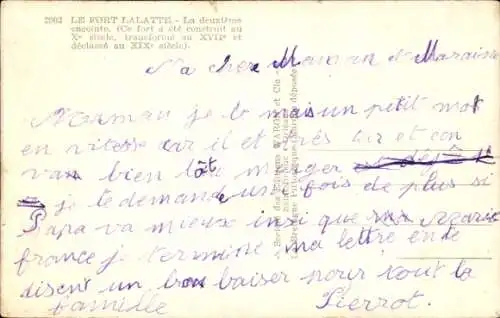 2902 LE FORT LALATTE. - La deuxième
enceinte. (Ce fort a été construit au
Xe siècle, transformé au XVIIe et
déclassé au XIXe siècle).
cher Maman et
Maman je te mais un petit mot
en vitesse car il et très tar et con
vas bien tôt manger
je te demande une fois de plus si
Papa va mieux insi que Marie
france je termine ma lettre en te
disent un bon baiser pour tout la
famille Pierrot.